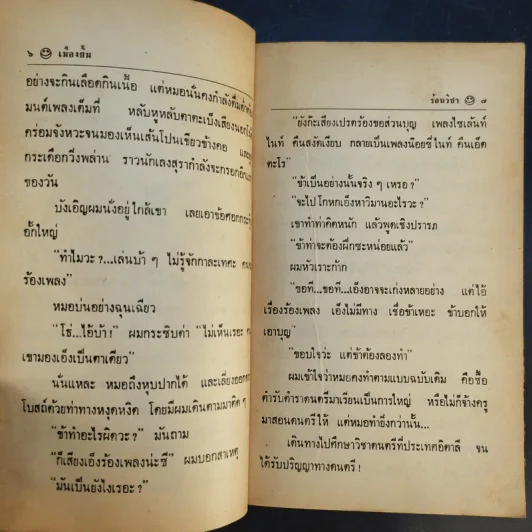 ๖ เมืองยิ้ม
อย่างจะกินเลือดกินเนื้อ แต่หมอนั่นคงกำลังดื่มด่ำ
มนต์เพลงเต็มที่ หลับหูหลับตาตะเบ็งเสียงนอกไป
คร่อมจังหวะจนมองเห็นเส้นโปนเขียวข้างคอ และ
กระเดือกวิ่งพล่าน ราวนักเลงสุรากำลังจะกรอกอึก
ของวัน
บังเอิญผมนั่งอยู่ใกล้เขา เลยเอาข้อศอกกระทุ้ง
อั้กใหญ่
"ทำไมวะ?...เล่นบ้า ๆ ไม่รู้จักกาละเทศะ
ร้องเพลง"
หมอบ่นอย่างฉุนเฉียว
"โธ่...ไอ้บ้า!" ผมกระซิบด่า "ไม่เห็นเรอะ
เขามองเอ็งเป็นตาเดียว"
นั่นแหละ หมอถึงหุบปากได้ และเลี่ยงออก
โบสถ์ด้วยท่าทางหงุดหงิด โดยมีผมเดินตามมาติด ๆ
"ข้าทำอะไรผิดวะ?" มันถาม
"ก็เสียงเอ็งร้องเพลงน่ะซี" ผมบอกสาเหตุ
"มันเป็นยังไงเรอะ?"
ร้อนวิชา ๗
"ยังกะเสียงเปรตร้องขอส่วนบุญ เพลงไซเล้นท์
ไนท์ คืนสงัดเงียบ กลายเป็นเพลงน้อยซี่ไนท์ คืนเอ็ด
ตะโร"
"ข้าเป็นอย่างนั้นจริง ๆ เหรอ?"
"จะไปโกหกเอ็งหาวิมานอะไรวะ?"
เขาทำท่าคิดหนัก แล้วพูดเชิงปรารภ
"ข้าท่าจะต้องฝึกซะหน่อยแล้ว"
ผมหัวเราะก๊าก
"ขอที...ขอที...เอ็งอาจจะเก่งหลายอย่าง แต่ไอ้
เรื่องร้องเพลง เอ็งไม่มีทาง เชื่อข้าเหอะ ข้าบอกให้
เอาบุญ"
"ขอบใจว่ะ แต่ข้าต้องลองทำ"
ผมเข้าใจว่าหมอคงทำตามแบบฉบับเดิม คือซื้อ
ตำรับตำราดนตรีมาเรียนเป็นการใหญ่ หรือไม่ก็จ้างครู
มาสอนดนตรีให้ แต่หมอทำยิ่งกว่านั้น...
เดินทางไปศึกษาวิชาดนตรีที่ประเทศอิตาลี จน
ได้รับปริญญาทางดนตรี!